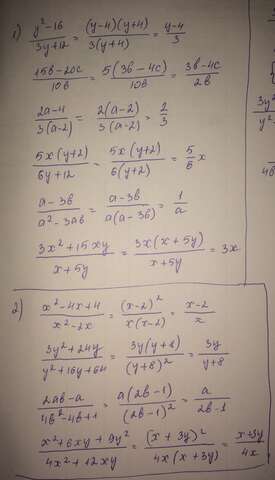 1) y²-16/3y+12 = (y-4)(y+4)/3(y+4) = y-4/3
15в-20с/10в = 5(3в-4с)/10в = 3в-4с/2в
2a-4/3(a-2) = 2(a-2)/3(a-2) = 2/3
5x(y+2)/6y+12 = 5x(y+2)/6(y+2) = 5/6 x
a-3в/a²-3aв = a-3в/a(a-3в) = 1/a
3x²+15xy/x+5y = 3x(x+5y)/x+5y = 3x
2) x²-4x+4/x²-2x = (x-2)²/x(x-2) = x-2/x
3y²+24y/y²+16y+64 = 3y(y+8)/(y+8)² = 3y/y+8
2aв-a/4в²-4в+1 = a(2в-1)/(2в-1)² = a/2в-1
x²+6xy+9y²/4x²+12xy = (x+3y)²/4x(x+3y) = x+3y/4x